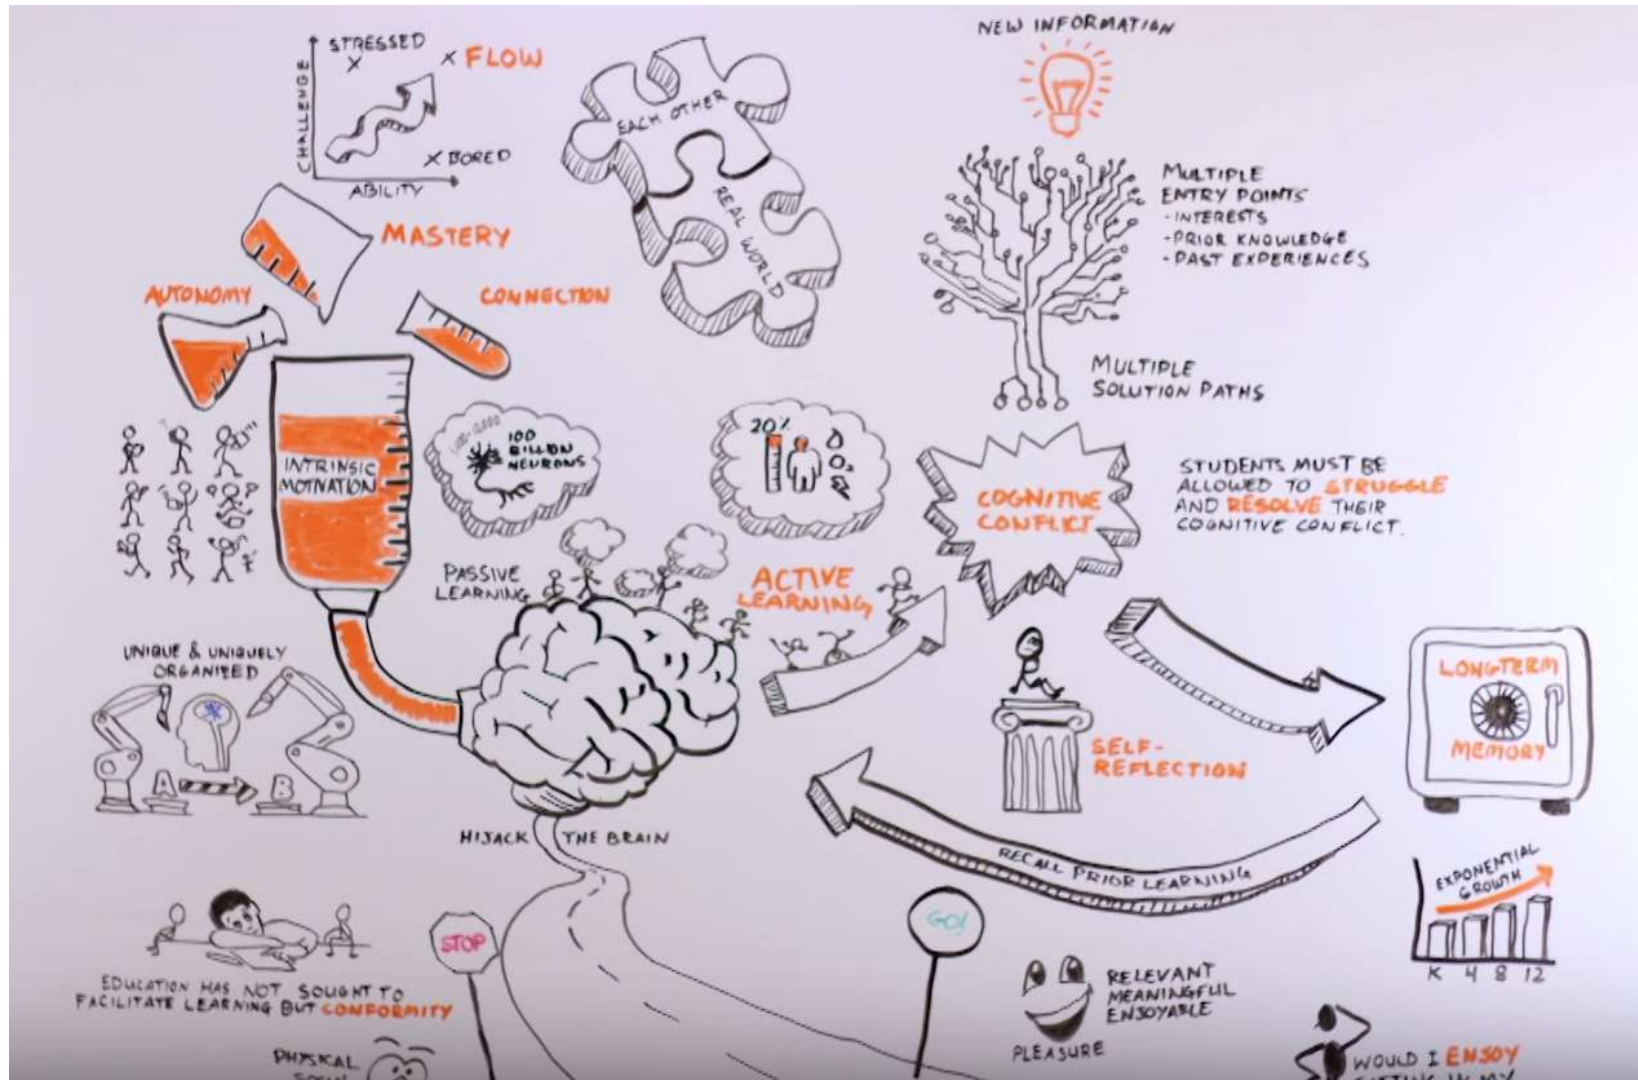 STRESSED
X
X FLOW
CHALLENGE
X BORED
ABILITY
EACH OTHER
REAL WORLD
NEW INFORMATION
MULTIPLE
ENTRY POINTS
- INTERESTS
- PRIOR KNOWLEDGE
- PAST EXPERIENCES
MULTIPLE
SOLUTION PATHS
MASTERY
AUTONOMY
CONNECTION
INTRINSIC
MOTIVATION
100
BILLION
NEURONS
20%
O₂
COGNITIVE
CONFLICT
STUDENTS MUST BE
ALLOWED TO STRUGGLE
AND RESOLVE THEIR
COGNITIVE CONFLICT.
PASSIVE
LEARNING
ACTIVE
LEARNING
UNIQUE & UNIQUELY
ORGANIZED
A
B
LONGTERM
MEMORY
SELF-
REFLECTION
HIJACK THE BRAIN
RECALL PRIOR LEARNING
EXPONENTIAL
GROWTH
K 4 8 12
STOP
GO!
EDUCATION HAS NOT SOUGHT TO
FACILITATE LEARNING BUT CONFORMITY
RELEVANT
MEANINGFUL
ENJOYABLE
PLEASURE
PHYSICAL
WOULD I ENJOY